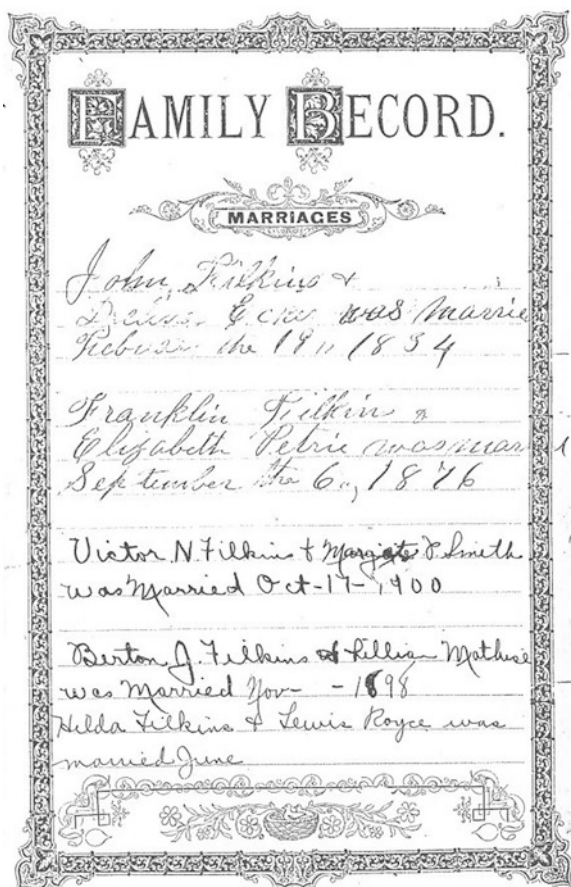 FAMILY RECORD.
MARRIAGES
John Filkins &
Ecker was Marrie
the 19,, 1834
Franklin Filkin &
Elizabeth Petrie was mar
September the 6,, 1876
Victor N. Filkins & F Smith
was Married Oct-17-1900
Berton J. Filkins & Lillian Mathise
was Married Nov- - 1898
Hilda Filkins & Lewis Royce was
married June